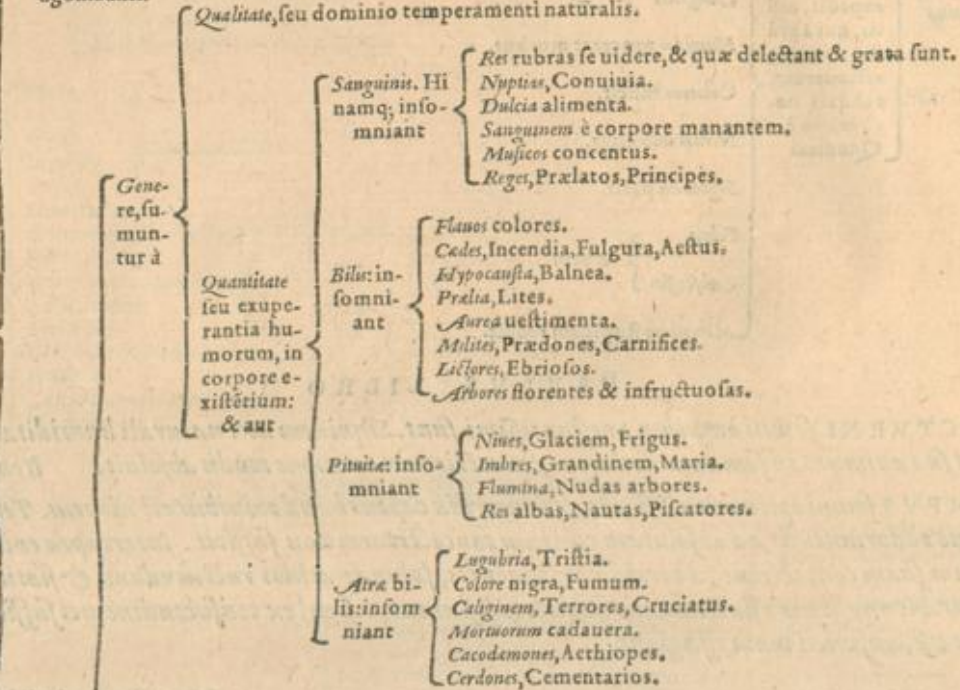 Qualitate, seu dominio temperamenti naturalis.
Gene-
re, su-
mun-
tur à
Quantitate
seu exupe-
rantia hu-
morum, in
corpore e-
xistẽtium:
& aut
Sanguinis. Hi
namq; inso-
mniant
Res rubras se uidere, & quæ delectant & grata sunt.
Nuptias, Conuiuia.
Dulcia alimenta.
Sanguinem è corpore manantem.
Musicos concentus.
Reges, Prælatos, Principes.
Bilis: in-
somni-
ant
Flauos colores.
Cædes, Incendia, Fulgura, Aestus.
Hypocausta, Balnea.
Prælia, Lites.
Aurea uestimenta.
Milites, Prædones, Carnifices.
Lictores, Ebriosos.
Arbores florentes & infructuosas.
Pituitæ: inso-
mniant
Niues, Glaciem, Frigus.
Imbres, Grandinem, Maria.
Flumina, Nudas arbores.
Res albas, Nautas, Piscatores.
Atræ bi-
lis: insom
niant
Lugubria, Tristia.
Colore nigra, Fumum.
Caliginem, Terrores, Cruciatus.
Mortuorum cadauera.
Cacodæmones, Aethiopes.
Cerdones, Cementarios.